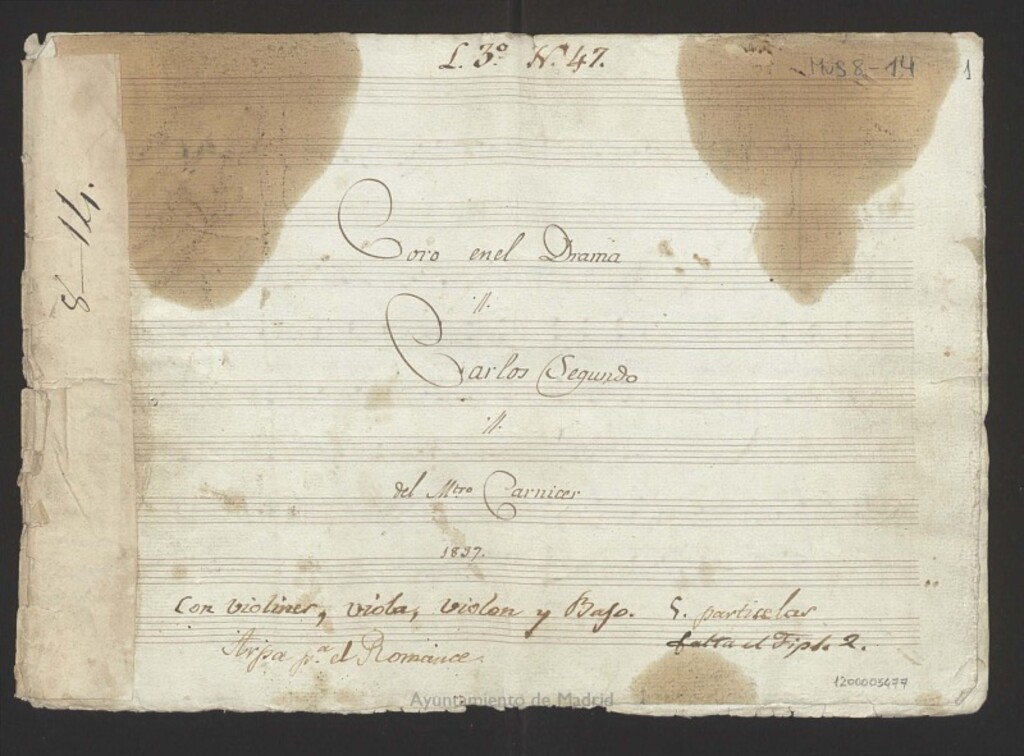 L. 3º N. 47.
Mus 8-14
1
8-14.
Coro en el Drama
//.
Carlos Segundo
//.
del Mtro Carnicer
1837.
Con violines, viola, violon y Bajo. 5. particelas
falta el Tiple 2.
Arpa p.a el Romance.
1200005477
Ayuntamiento de Madrid